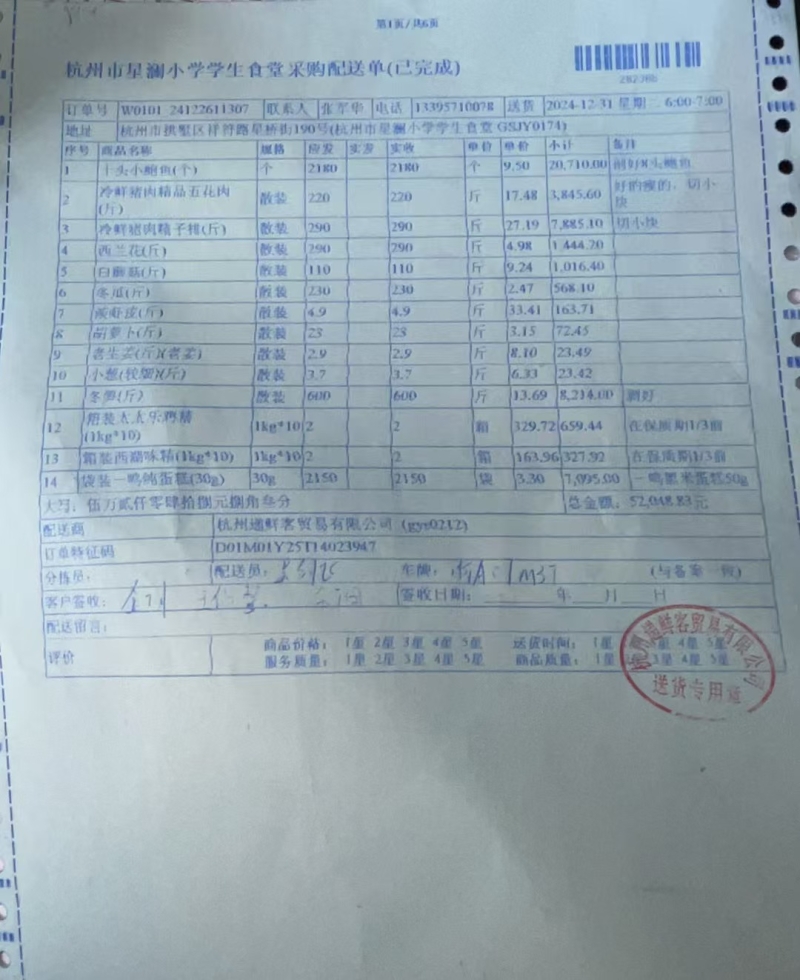 第1页/共6页
杭州市星澜小学学生食堂采购配送单(已完成)
订单号 W0101_24122611307 联系人 张军华 电话 13395710078 送货 2024-12-31 星期二 6:00-7:00
地址 杭州市拱墅区祥符路星桥街190号(杭州市星澜小学学生食堂 GSJY0174)
序号 商品名称 规格 应发 实发 实收 单价 单价 小计 备注
1 十头小鲍鱼(个) 个 2180 2180 个 9.50 20,710.00
2 冷鲜猪肉精品五花肉(斤) 散装 220 220 斤 17.48 3,845.60 好的瘦的，切小块
3 冷鲜猪肉精子排(斤) 散装 290 290 斤 27.19 7,885.10 切小块
4 西兰花(斤) 散装 290 290 斤 4.98 1,444.20
5 白蘑菇(斤) 散装 110 110 斤 9.24 1,016.40
6 冬瓜(斤) 散装 230 230 斤 2.47 568.10
7 散装 4.9 4.9 斤 33.41 163.71
8 胡萝卜(斤) 散装 23 23 斤 3.15 72.45
9 老生姜(斤)(老姜) 散装 2.9 2.9 斤 8.10 23.49
10 小葱(斤) 散装 3.7 3.7 斤 6.33 23.42
11 冬笋(斤) 散装 600 600 斤 13.69 8,214.00 剥好
12 箱装太太乐鸡精(1kg*10) 1kg*10 2 2 箱 329.72 659.44 在保质期1/3前
13 箱装西湖味精(1kg*10) 1kg*10 2 2 箱 163.96 327.92 在保质期1/3前
14 袋装一鸣纯蛋糕(30g) 30g 2150 2150 袋 3.30 7,095.00 一鸣黑米蛋糕50g
大写：伍万贰仟零肆拾捌元捌角叁分 总金额：52,048.83元
配送商 杭州通鲜客贸易有限公司 (gys0212)
订单特征码 D01M01Y25T14023947
分拣员： 配送员： 车牌： (与备案一致)
客户签收： 签收日期： 年 月 日
配送留言：
评价 商品价格： 1星 2星 3星 4星 5星 送货时间： 1星 4星 5星
服务质量： 1星 2星 3星 4星 5星 商品质量： 1星 3星 4星 5星
送货专用章